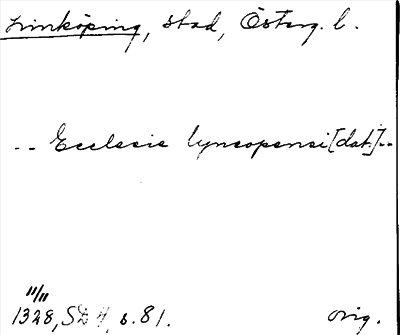 Linköping, stad, Österg. l.
-- Ecclesie lyncopensi [dat.] --
11/11
1328, SD 4, s. 81. orig.